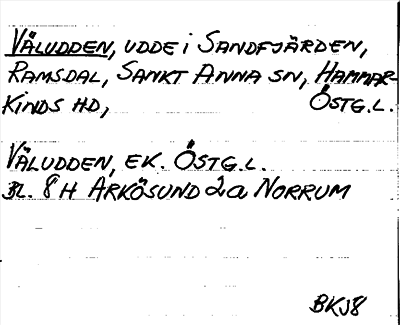 VÄLUDDEN, UDDE i SANDFJÄRDEN,
RAMSDAL, SANKT ANNA SN, HAMMAR-
KINDS HD, ÖSTG.L.
VÄLUDDEN, EK. ÖSTG.L.
BL. 8 H ARKÖSUND 2a NORRUM
BKJ8